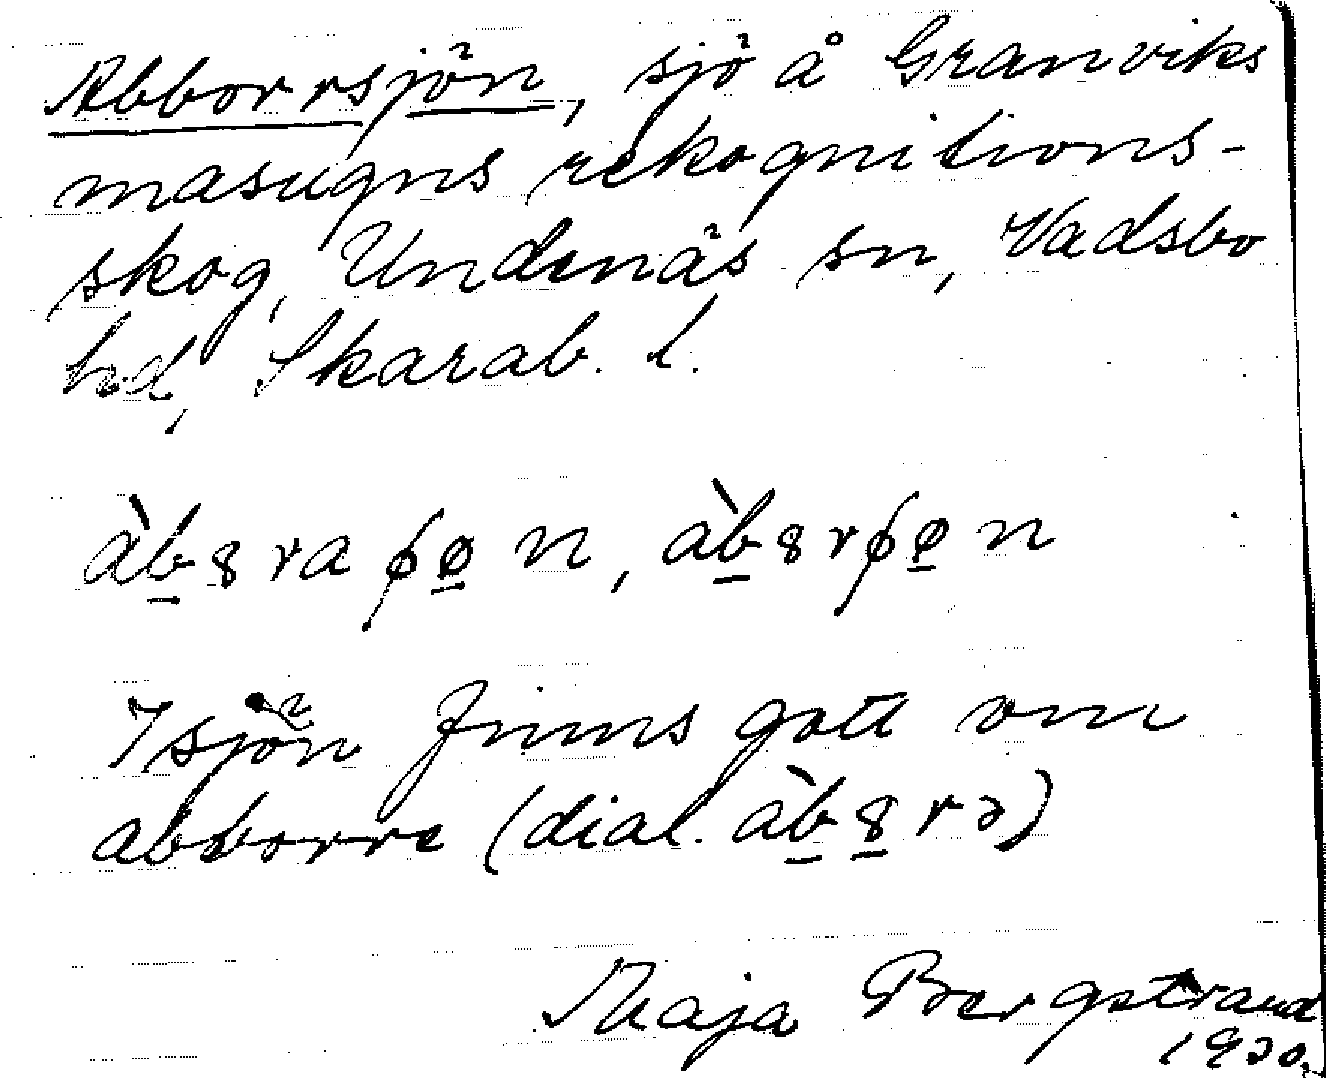 Abborrsjön, sjö å Granviks
masugns rekognitions-
skog, Undenäs sn, Vadsbo
hd, Skarab. l.
àb̲8ra ɸø̲n, àb̲8rɸø̲n
I sjön finns gott om
abborre (dial. àb̲8̲rə)
Maja Bergstrand
1930.